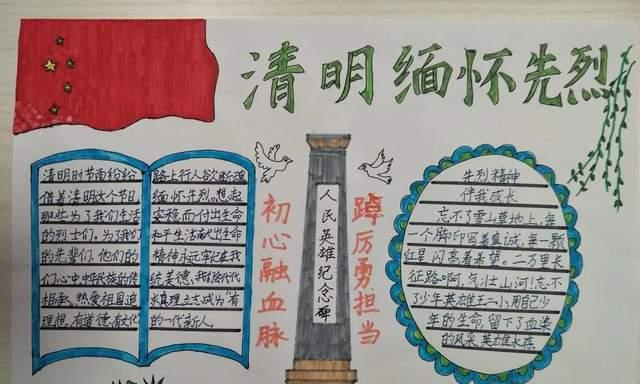 清明缅怀先烈
清明时节雨纷纷
借着清明这个节日
那些为了我们生活
的烈士们。为了我们
的先辈们,他们的
们心中中华民族的传
相承,热爱祖国追
理想、有道德、有文化
路上行人欲断魂
缅怀先烈。想起
安稳而付出生命
和平生活献出生命
精神永远牢记在我
统美德,我们代代
求真理立志成为"有
的一代新人。
初心融血脉
人民英雄纪念碑
踔厉勇担当
先烈精神
伴我成长
忘不了雪山草地上,每
一个脚印写着真诚,每一颗
红星闪亮着希望。二万里长
征路啊,气壮山河!忘不
了少年英雄王二小,用自己少
年的生命,留下了血染
的风采,英雄永存